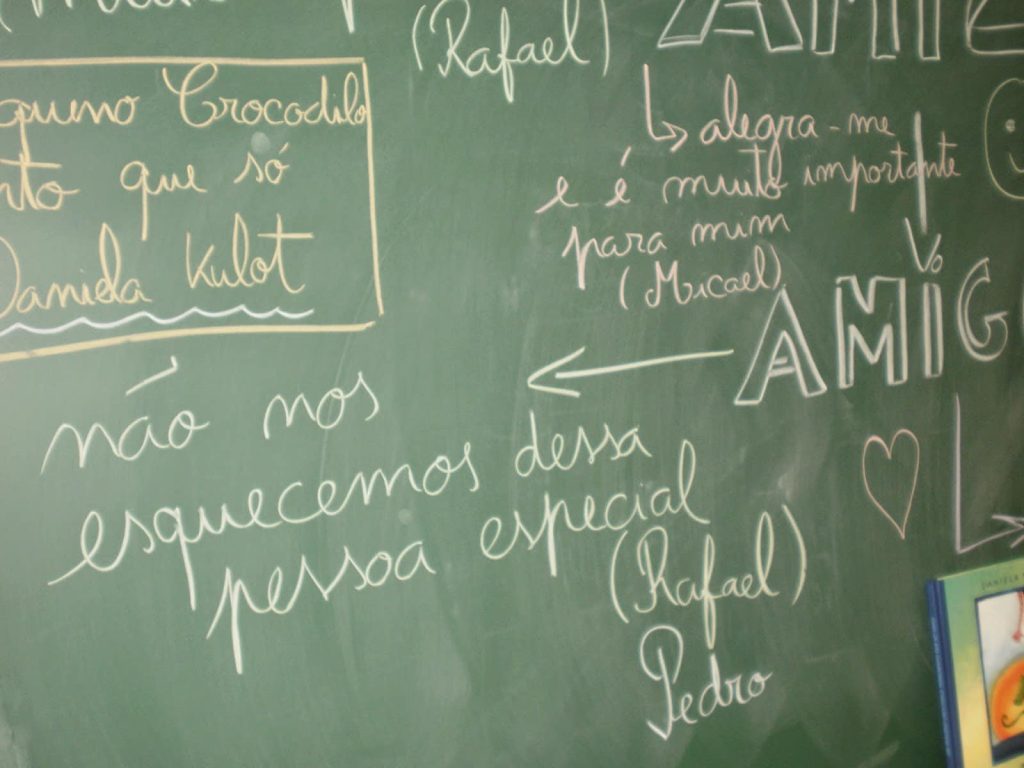 (Rafael)
queno Crocodilo
nto que só
Daniela Kulot
alegra-me
e é muito importante
para mim
(Micael)
AMIG
não nos
esquecemos dessa
pessoa especial
(Rafael)
Pedro
DANIELA